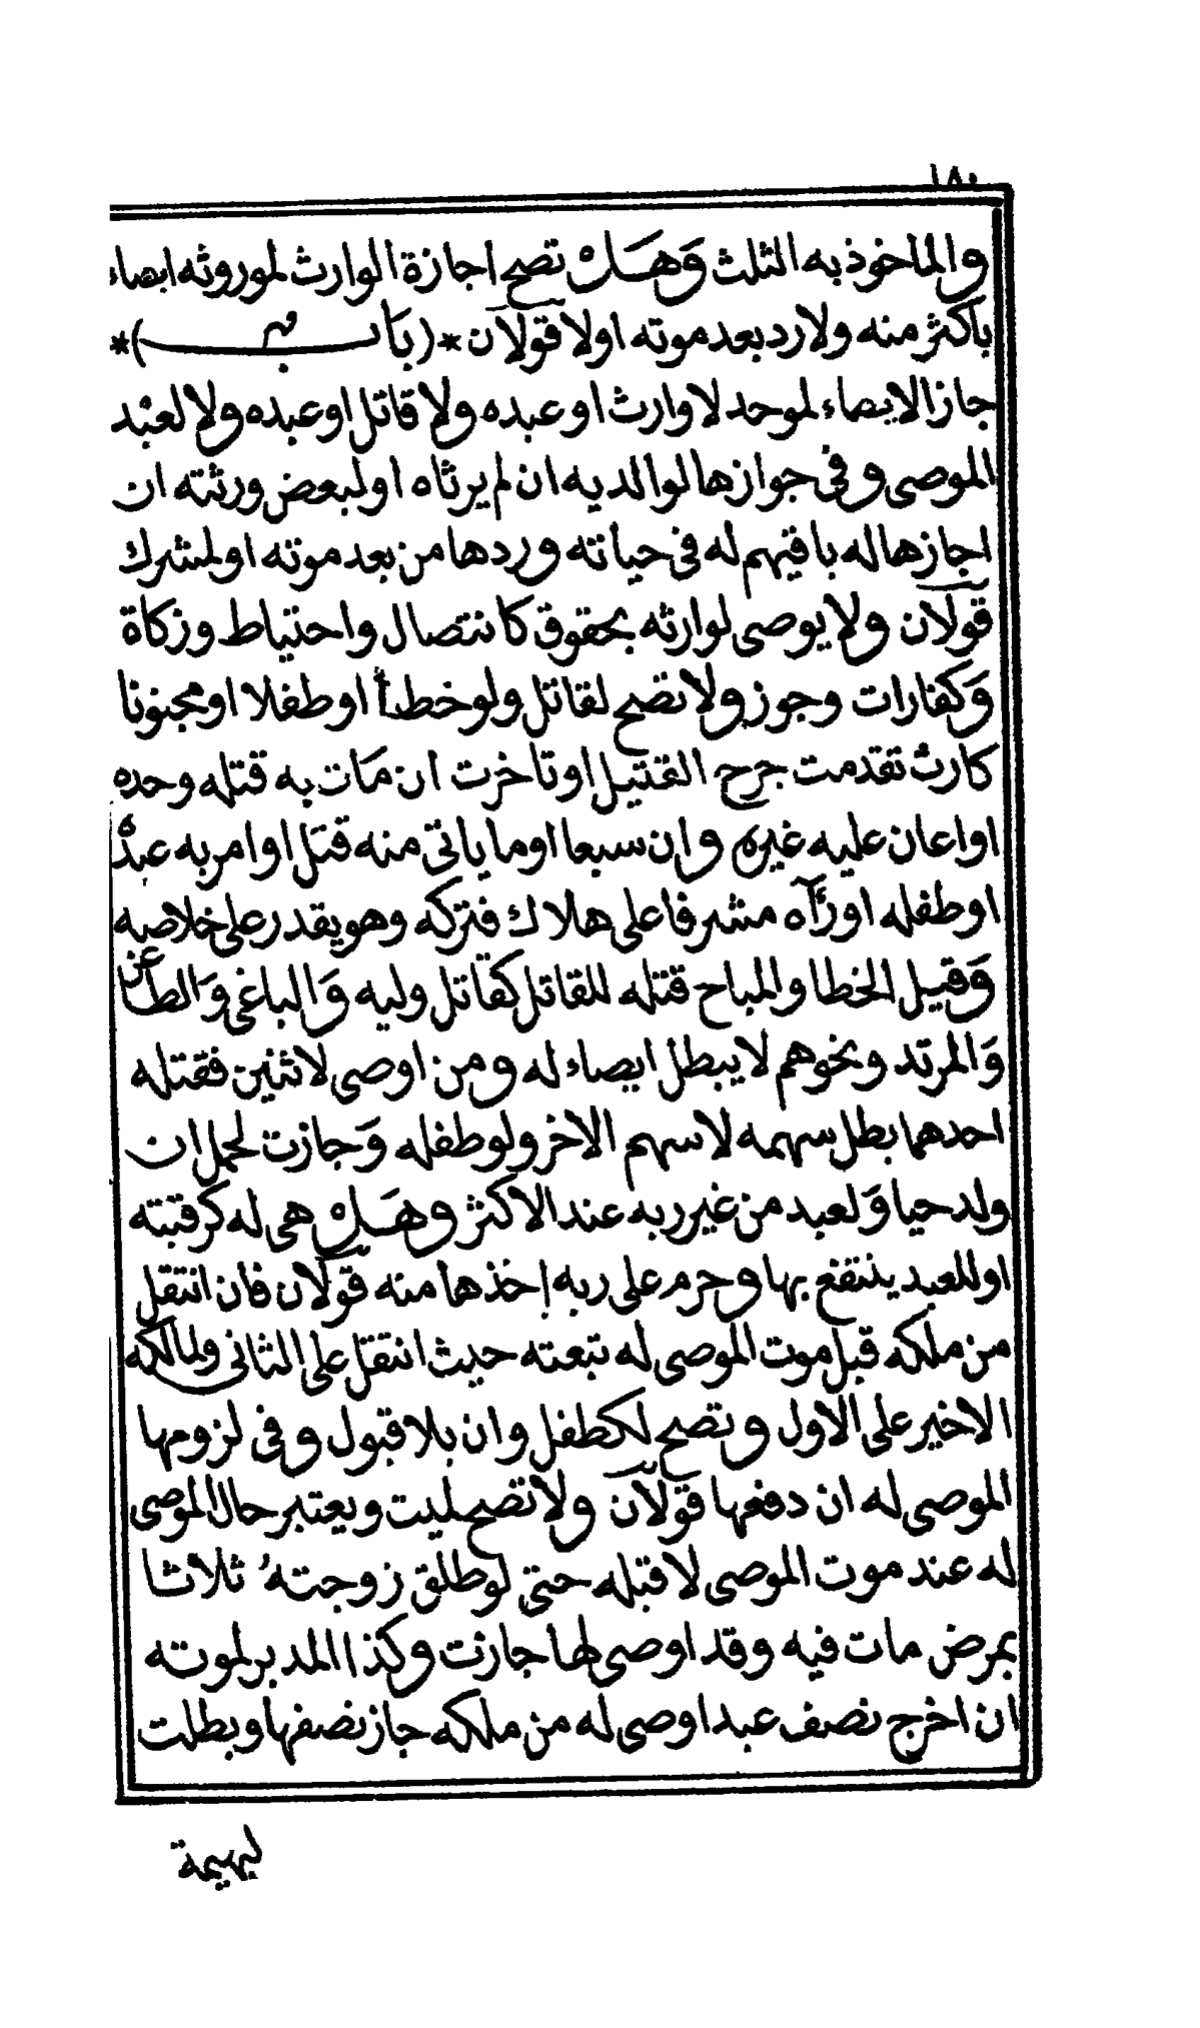 ١٨٠
والماخوذ به الثلث وَهَـل تصح اجازة الوارث لموروثه ايصاء
باكثر منه ولا رد بعد موته اولا قولان *(بَاب)*
جاز الايصاء لموحد لا وارث او عبده ولا قاتل او عبده ولا لعبد
الموصى وفى جوازها لوالديه ان لم يرثاه او لبعض ورثته ان
اجازها له باقيهم له فى حياته وردها من بعد موته او لمشرك
قولان ولا يوصى لوارثه بحقوق كانتصال واحتياط وزكاة
وَكفارات وجوز ولا تصح لقاتل ولو خطأ او طفلا او مجنونا
كارث تقدمت جرح القتيل او تاخرت ان مَات به قتله وحده
او اعان عليه غيره وان سبعا او ما ياتى منه قتل او امر به عبدْ
او طفله او رآه مشرفا على هلاك فتركه وهو يقدر على خلاصه
وَقيل الخطا والمباح قتله للقاتل كقاتل وليه وَالباغى وَالطاعن
وَالمرتد ونحوهم لا يبطل ايصاء له ومن اوصى لاثنين فقتله
احدهما بطل سهمه لا سهم الاخر ولو طفله وَجازت لحمل ان
ولد حيا وَلعبد من غير ربه عند الاكثر وهَـل هى له كرقبته
او للعبد ينتفع بها وحرم على ربه إخذها منه قولان فان انتقل
من ملكه قبل موت الموصى له تبعته حيث انتقل على الثانى ولمالكه
الاخير على الاول وتصح لكطفل وان بلا قبول وفى لزومها
الموصى له ان دفعها قولان ولا تصح لميت ويعتبر حال الموصى
له عند موت الموصى لا قبله حتى لو طلق زوجتهُ ثلاثا
بمرض مات فيه وقد اوصى لها جازت وكذا المدبر لموته
ان اخرج نصف عبد اوصى له من ملكه جاز نصفها وبطلت
لبهيمة